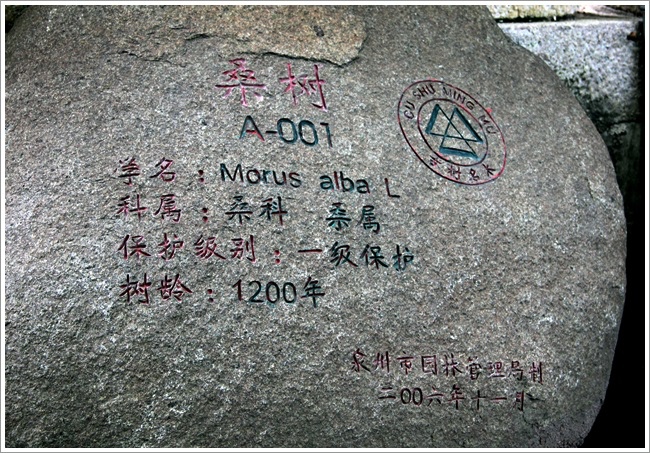 桑树
A-001
GU SHU MING MU
古树名木
学名：Morus alba L
科属：桑科 桑属
保护级别：一级保护
树龄：1200年
泉州市园林管理局制
二00六年十一月